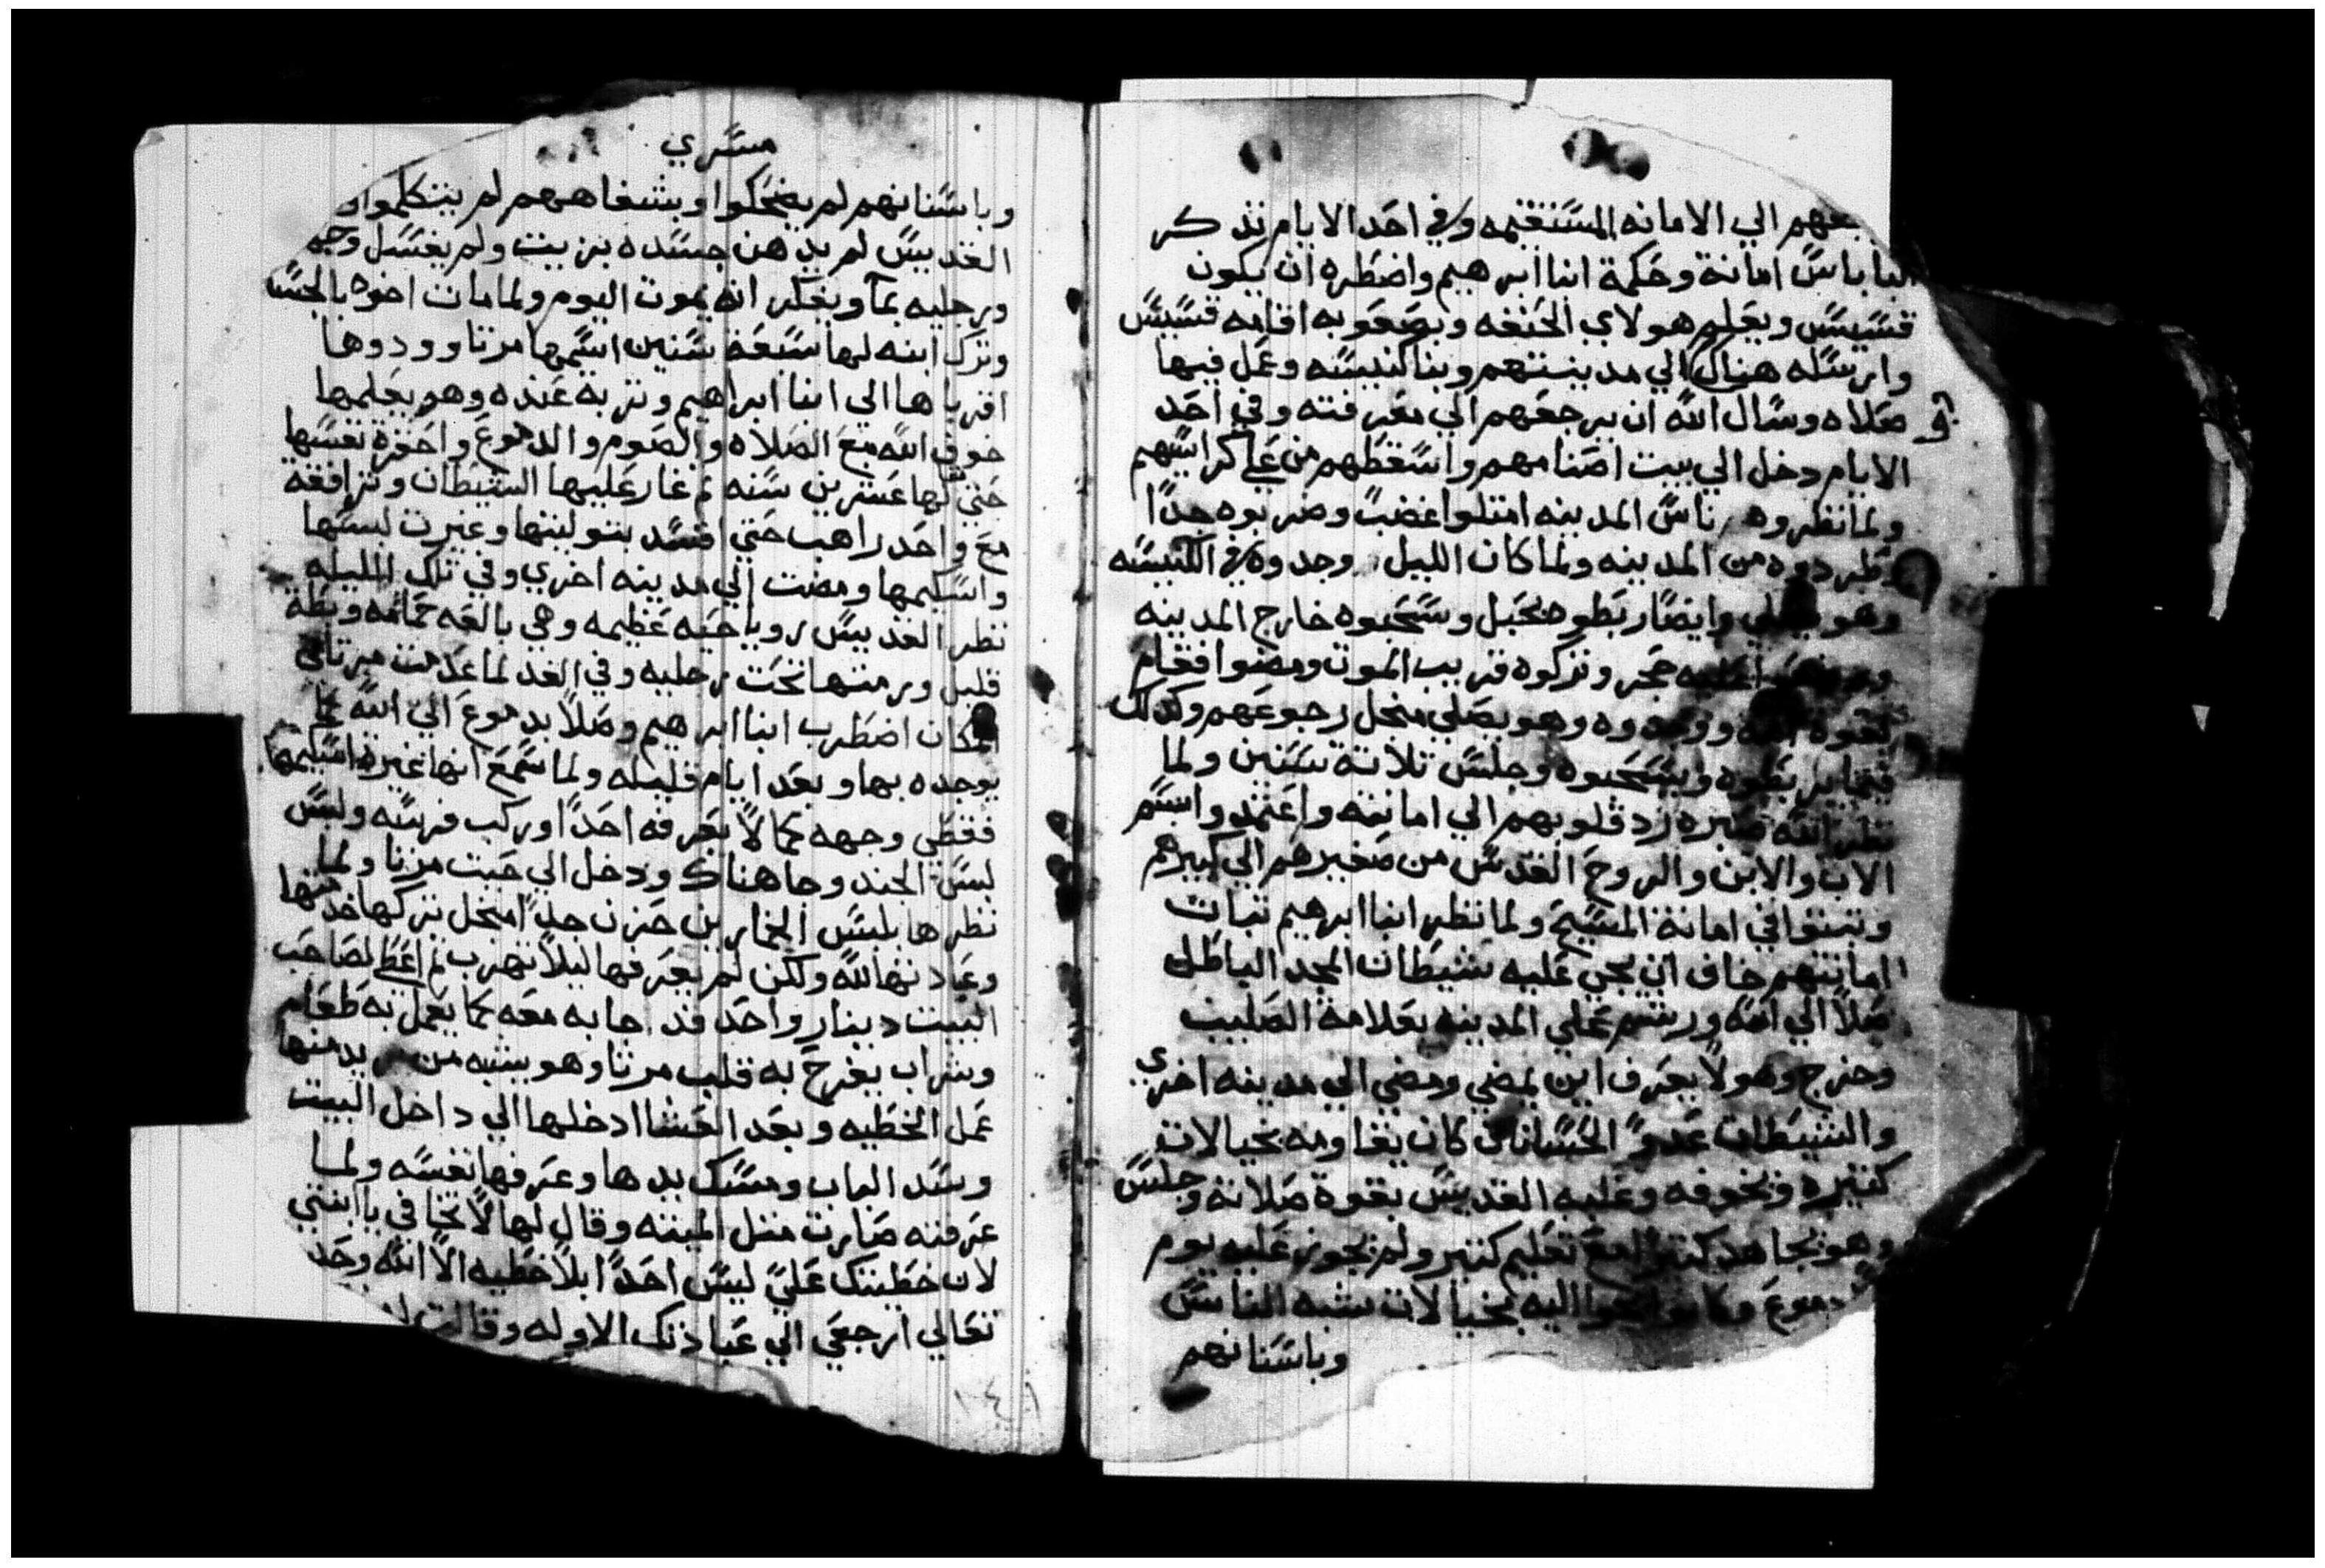 الي الامانه المستقيمه وفي احد الايام تذكر
الباباس امانة وحكمة انبا ابرهيم واضطره ان يكون
قسيس ويعلم هولاي الحنفه وبصعوبه اقامه قسيس
وارسله هناك الي مدينتهم وبنا كنيسه وعمل فيها
صلاه وسال الله ان يرجعهم الي معرفته وفي احد
الايام دخل الي بيت اصنامهم واسقطهم من علي كراسيهم
ولما نظروه ناس المدينه امتلوا غضبً وضربوه جدًا
وطردوه من المدينه ولما كان الليل وجدوه في الكنيسه
وهو يصلي وايضًا ربطوه بحبل وسحبوه خارج المدينه
حجر وتركوه قريب الموت ومضوا فقام
بقوة الله ووجدوه وهو يصلي منجل رجوعهم وكذلك
ربطوه وسحبوه وجلس تلاتة سنين ولما
نظر الله صبره رد قلوبهم الي امانته واعتمدوا باسم
الاب والابن والروح القدس من صغيرهم الي كبيرهم
وتبتوا في امانة المسيح ولما نظر انبا ابرهيم تبات
امانتهم خاف ان يجي عليه شيطان المجد الباطل
صلاً الي الله ورشم علي المدينه بعلامة الصليب
وخرج وهو لا يعرف اين يمضي ومضي الي مدينه اخري
والشيطان عدو الحسانات كان يقاومه بخيالات
كتيره وتخوفه وغلبه القديس بقوة صلاته وجلس
وهو يجاهد كتير مع تعليم كتير ولم يجوز عليه يوم
دموع وكانوا يجوا اليه بخيالات بشبه الناس
وباسنانهم
مسري
وباسنانهم لم يضحكوا وبشفاههم لم يتكلموا
القديس لم يدهن جسده بزيت ولم يغسل وجهه
ورجليه بمآ ويفكر انه يموت اليوم ولما مات اخوه بالجسد
وترك ابنه لها سبعة سنين اسمها مرتا وودوها
اقرباها الي انبا ابراهيم وتربه عنده وهو يعلمها
خوف الله مع الصلاه والصوم والدموع واحقرة نفسها
حتي لها عشرين سنه تم غار عليها الشيطان وترافقة
مع واحد راهب حتي افسد بتوليتها وغيرت لبسها
واسكيمها ومضت الي مدينه اخري وفي تلك الليله
نظر القديس رويا حيه عظيمه وهي بالعه حمامه وبطة
قليل ورمتها تحت رجليه وفي الغد لما عدمت مرتا في
المكان اضطرب انبا ابرهيم وصلاً بدموع الي الله كما
يوجده بها وبعد ايام قليله ولما سمع انها غيرة اسكيمها
فغطي وجهه كما لا يعرفه احدًا وركب فرسه ولبس
لبس الجند وجا هناك ودخل الي حيت مرتا ولما
نظرها بلبس الخمارين حزن جدًا منجل تركها خدمتها
وعبادتها لله ولكن لم يعرفها ليلا تهرب تم اعطا لصاحب
البيت دينار واحد قد جابه معه كما يعمل به طعام
وشراب يفرح به قلب مرتا وهو يشبه من يريد منها
عمل الخطيه وبعد العشا ادخلها الي داخل البيت
وسد الباب ومسك يدها وعرفها نفسه ولما
عرفته صارت متل الميته وقال لها لا تخافي يا ابنتي
لان خطيتك علي ليس احدً ابلا خطيه الا الله وحد
تعالي ارجعي الي عبادتك الاوله وقالت
١٤١